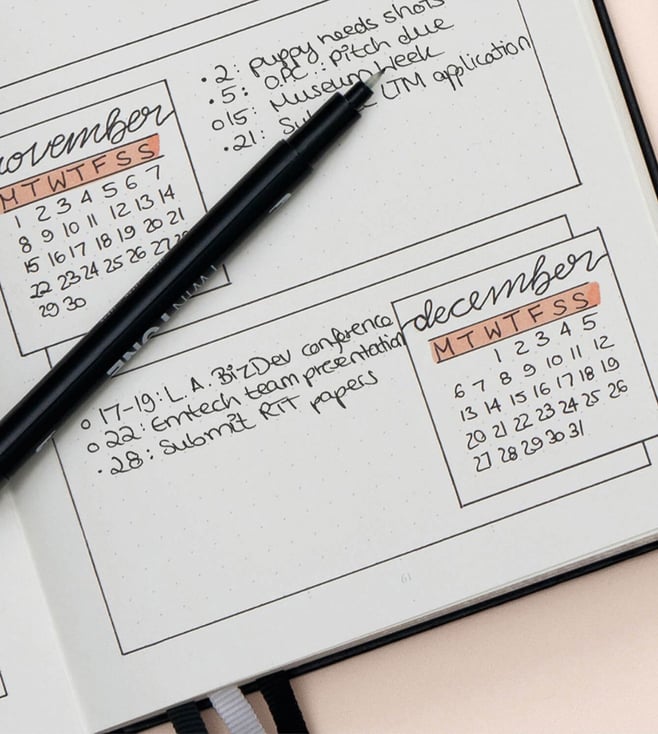 ·2: puppy needs shots
·5: O.P.C.: Pitch due
o15: Museum Week
·21: LTM application
november
M T W T F S S
1 2 3 4 5 6 7
8 9 10 11 12 13 14
15 16 17 18 19 20 21
22 23 24 25 26 27 28
29 30
december
M T W T F S S
1 2 3 4 5
6 7 8 9 10 11 12
13 14 15 16 17 18 19
20 21 22 23 24 25 26
27 28 29 30 31
o 17-19: L.A. BizDev conference
o 22: Emtech team presentation
·28: Submit RTT papers
61